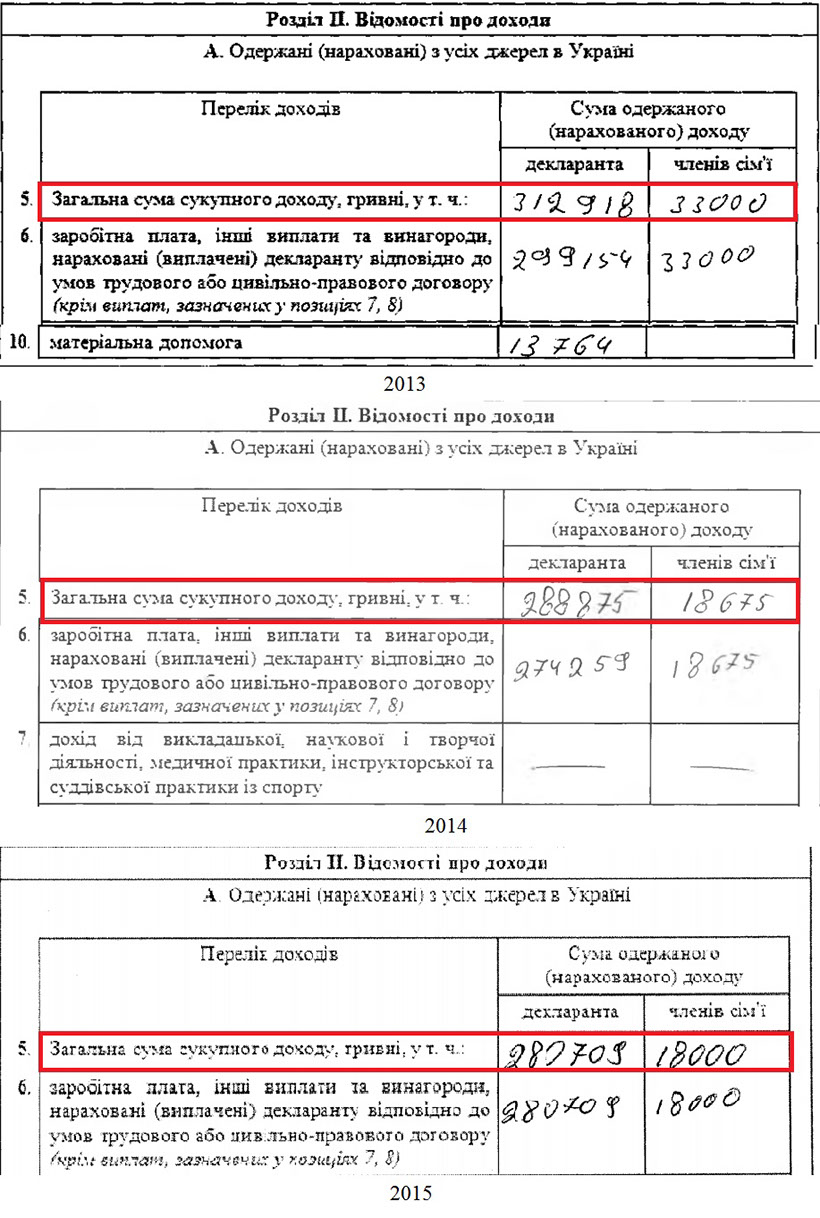 Розділ II. Відомості про доходи
А. Одержані (нараховані) з усіх джерел в Україні
Перелік доходів
Сума одержаного
(нарахованого) доходу
декларанта
членів сім'ї
5. Загальна сума сукупного доходу, гривні, у т. ч.: 312918 33000
6. заробітна плата, інші виплати та винагороди,
нараховані (виплачені) декларанту відповідно до 299154 33000
умов трудового або цивільно-правового договору
(крім виплат, зазначених у позиціях 7, 8)
10. матеріальна допомога 13764
2013
Розділ II. Відомості про доходи
А. Одержані (нараховані) з усіх джерел в Україні
Перелік доходів
Сума одержаного
(нарахованого) доходу
декларанта
членів сім'ї
5. Загальна сума сукупного доходу, гривні, у т. ч.: 288875 18675
6. заробітна плата, інші виплати та винагороди,
нараховані (виплачені) декларанту відповідно до 274259 18675
умов трудового або цивільно-правового договору
(крім виплат, зазначених у позиціях 7, 8)
7. дохід від викладацької, наукової і творчої
діяльності, медичної практики, інструкторської та
суддівської практики із спорту
2014
Розділ II. Відомості про доходи
А. Одержані (нараховані) з усіх джерел в Україні
Перелік доходів
Сума одержаного
(нарахованого) доходу
декларанта
членів сім'ї
5. Загальна сума сукупного доходу, гривні, у т. ч.: 280709 18000
6. заробітна плата, інші виплати та винагороди,
нараховані (виплачені) декларанту відповідно до 280709 18000
умов трудового або цивільно-правового договору
(крім виплат, зазначених у позиціях 7, 8)
2015